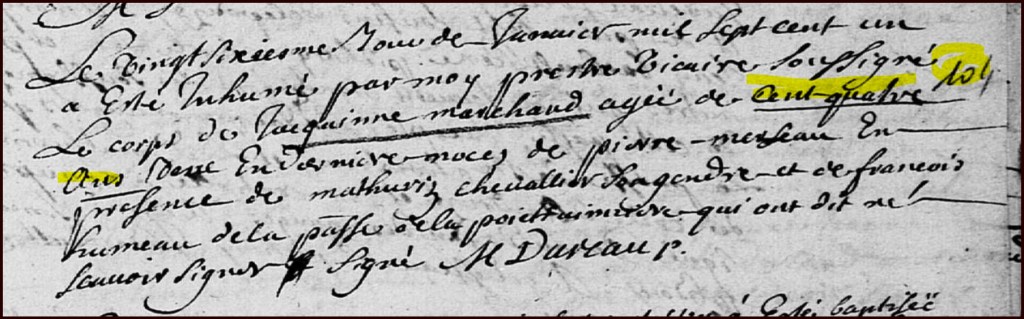 Le vingt sixiesme Jour de Janvier mil sept cent un
a Esté Inhumé par moy prestre vicaire soussigné 104
Le corps de Jacquinne marchand agéé de cent quatre
Ans veuve En derniere noces de pierre merseau En
presence de mathurin chevallier son gendre et de francois
humeau de la passe de la qui ont dit né
scavoir signer signé M Dureau p.
Esté baptiséé